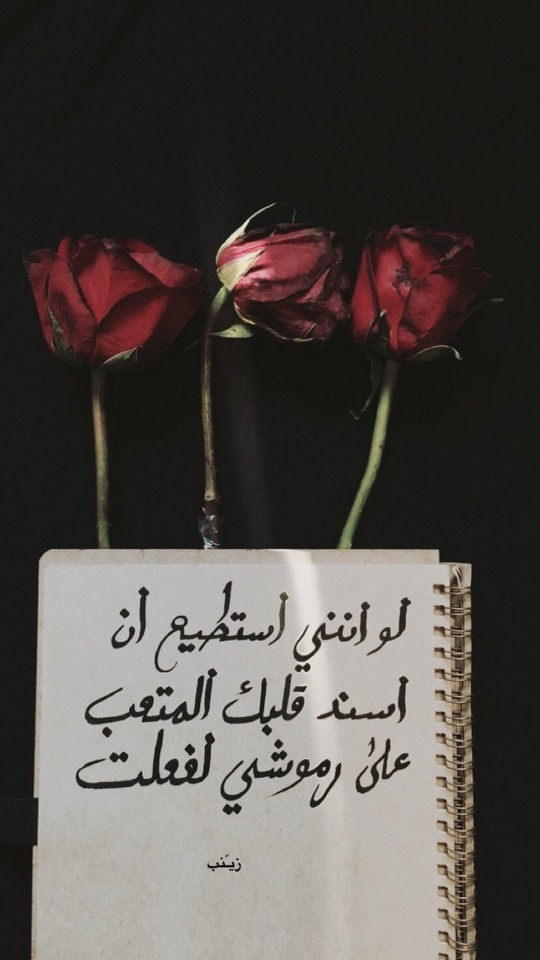 لو أنني أستطيع أن
أسند قلبك المتعب
على رموشي لفعلت
زينب